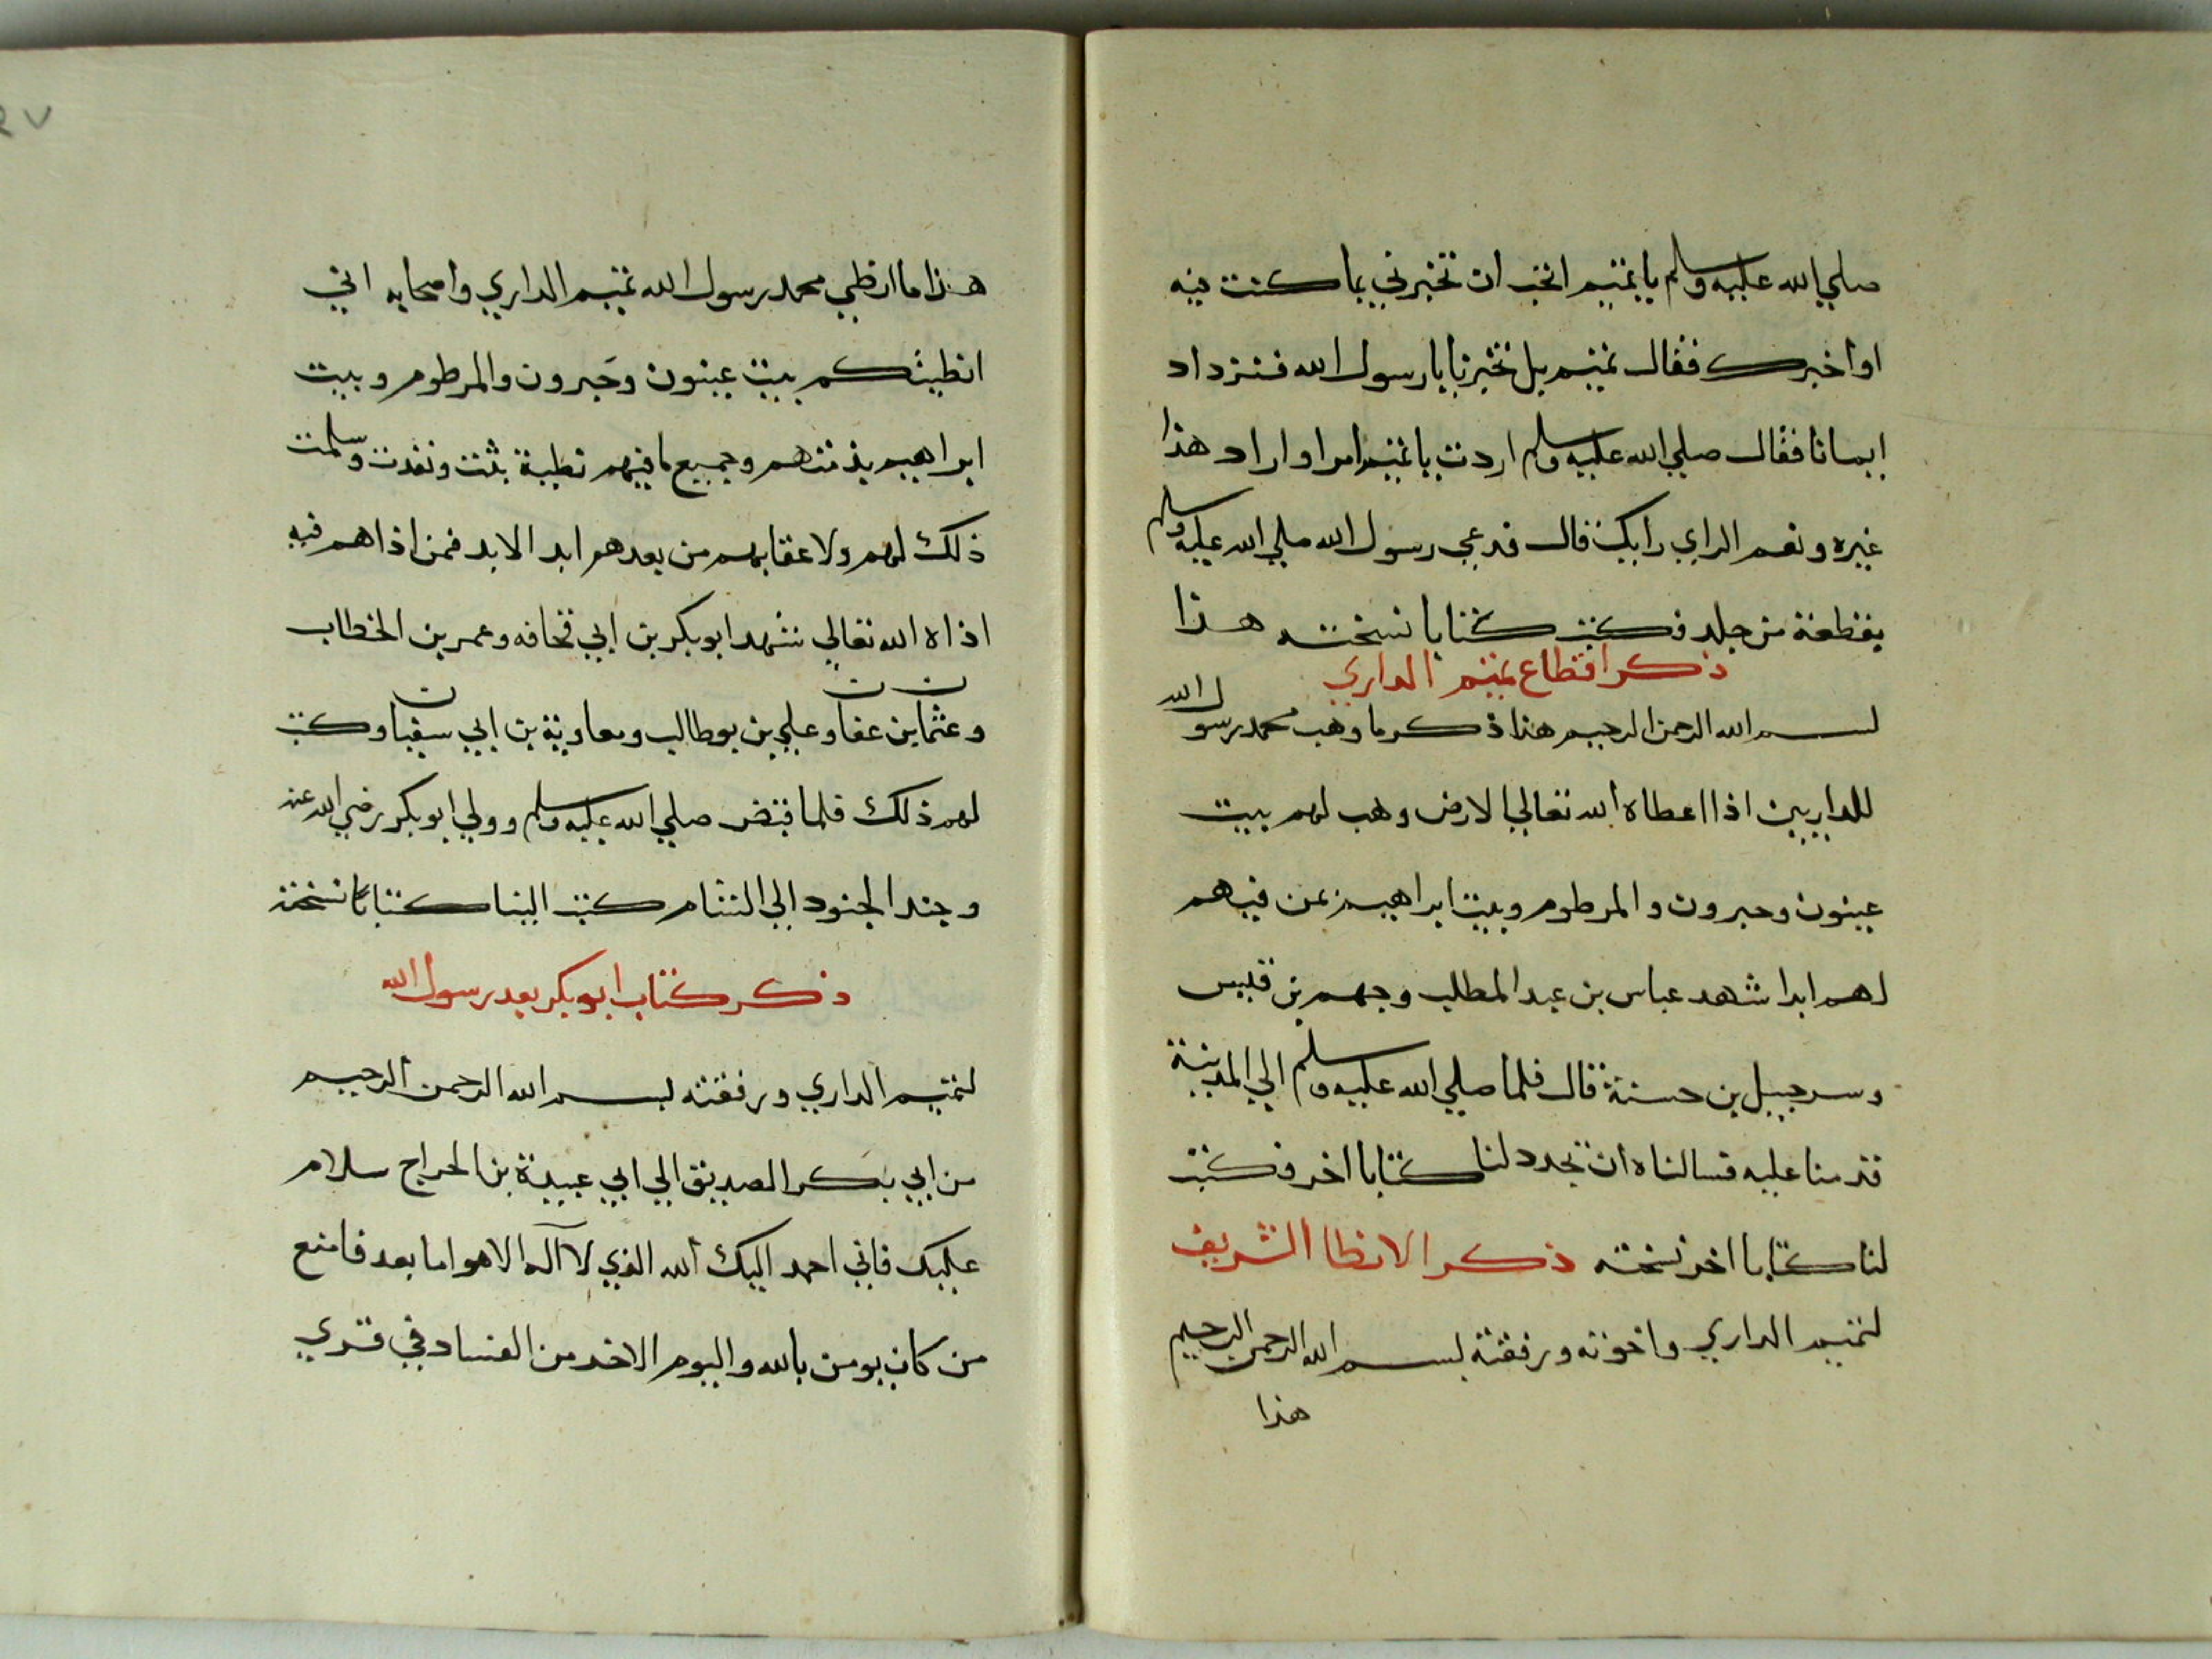 صلي الله عليه وسلم يا تميم اتحب ان تخبرني بما كنت فيه
او اخبرك فقال تميم بل تخبرنا يا رسول الله فنزداد
ايمانا فقال صلي الله عليه وسلم اردت يا تميم امرا و اراد هذا
غيره ونعم الراي رايك قال فدعي رسول الله صلي الله عليه وسلم
بقطعة من جلد فكتب كتابا نسخته هذا
ذكر اقطاع تميم الداري
بسم الله الرحمن الرحيم هذا ذكر ما وهب محمد رسول الله
للداريين اذا اعطاه الله تعالي الارض وهب لهم بيت
عينون وحبرون والمرطوم وبيت ابراهيم بمن فيهم
لهم ابدا شهد عباس بن عبد المطلب وجهم بن قيس
وسرجبيل بن حسنة قال فلما صلي الله عليه وسلم الي المدينة
قدمنا عليه فسالناه ان يجدد لنا كتابا اخر فكتب
لنا كتابا اخر نسخته ذكر الانطا الشريف
لتميم الداري واخوته ورفقته بسم الله الرحمن الرحيم
هذا
هذا ما انطي محمد رسول الله تميم الداري واصحابه اني
انطيتكم بيت عينون وحبرون والمرطوم وبيت
ابراهيم بذمتهم وجميع ما فيهم نطية بتت ونفدت وسلمت
ذلك لهم ولاعقابهم من بعدهم ابد الابد فمن اذاهم فيه
اذاه الله تعالي شهد ابو بكر بن ابي قحافه وعمر بن الخطاب
وعثمان بن عفان وعلي بن بوطالب ومعاوية بن ابي سفيان وكتب
لهم ذلك فلما قبض صلي الله عليه وسلم وولي ابو بكر رضي الله عنه
وجند الجنود الي الشام كتب الينا كتابا نسخته
ذكر كتاب ابو بكر بعد رسول الله
لتميم الداري ورفقته بسم الله الرحمن الرحيم
من ابي بكر الصديق الي ابي عبيدة بن الجراح سلام
عليك فاني احمد اليك الله الذي لا اله الا هو اما بعد فامنع
من كان يومن بالله واليوم الاخر من الفساد في قري